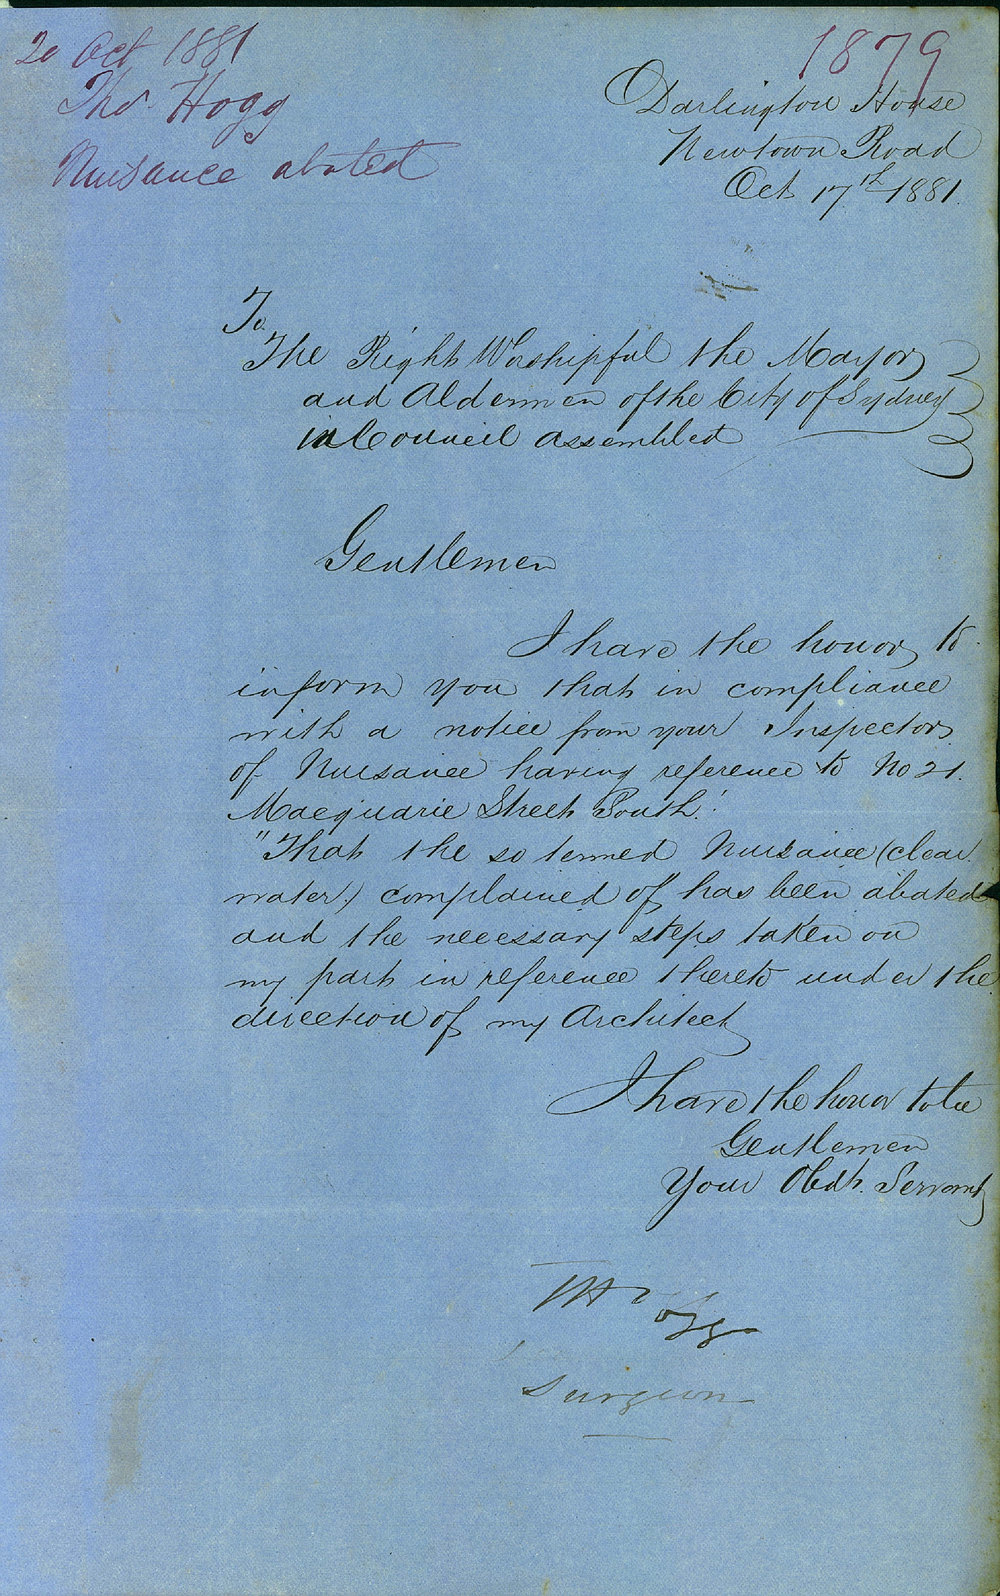 20 Oct 1881
1879
Thos. Hogg
Nuisance abated
Darlington House
Newtown Road
Oct 17th 1881.
To
The Right Worshipful the Mayor
and Aldermen of the City of Sydney
in Council assembled
Gentlemen
I have the honor to
inform you that in compliance
with a notice from your Inspector
of Nuisance having reference to No 21.
Macquarie Street South.
"That the so termed Nuisance (clear
water) complained of has been abated
and the necessary steps taken on
my part in reference thereto under the
direction of my Architect
I have the honor to be
Gentlemen
Your Obdt. Servant
Hogg
Surgeon